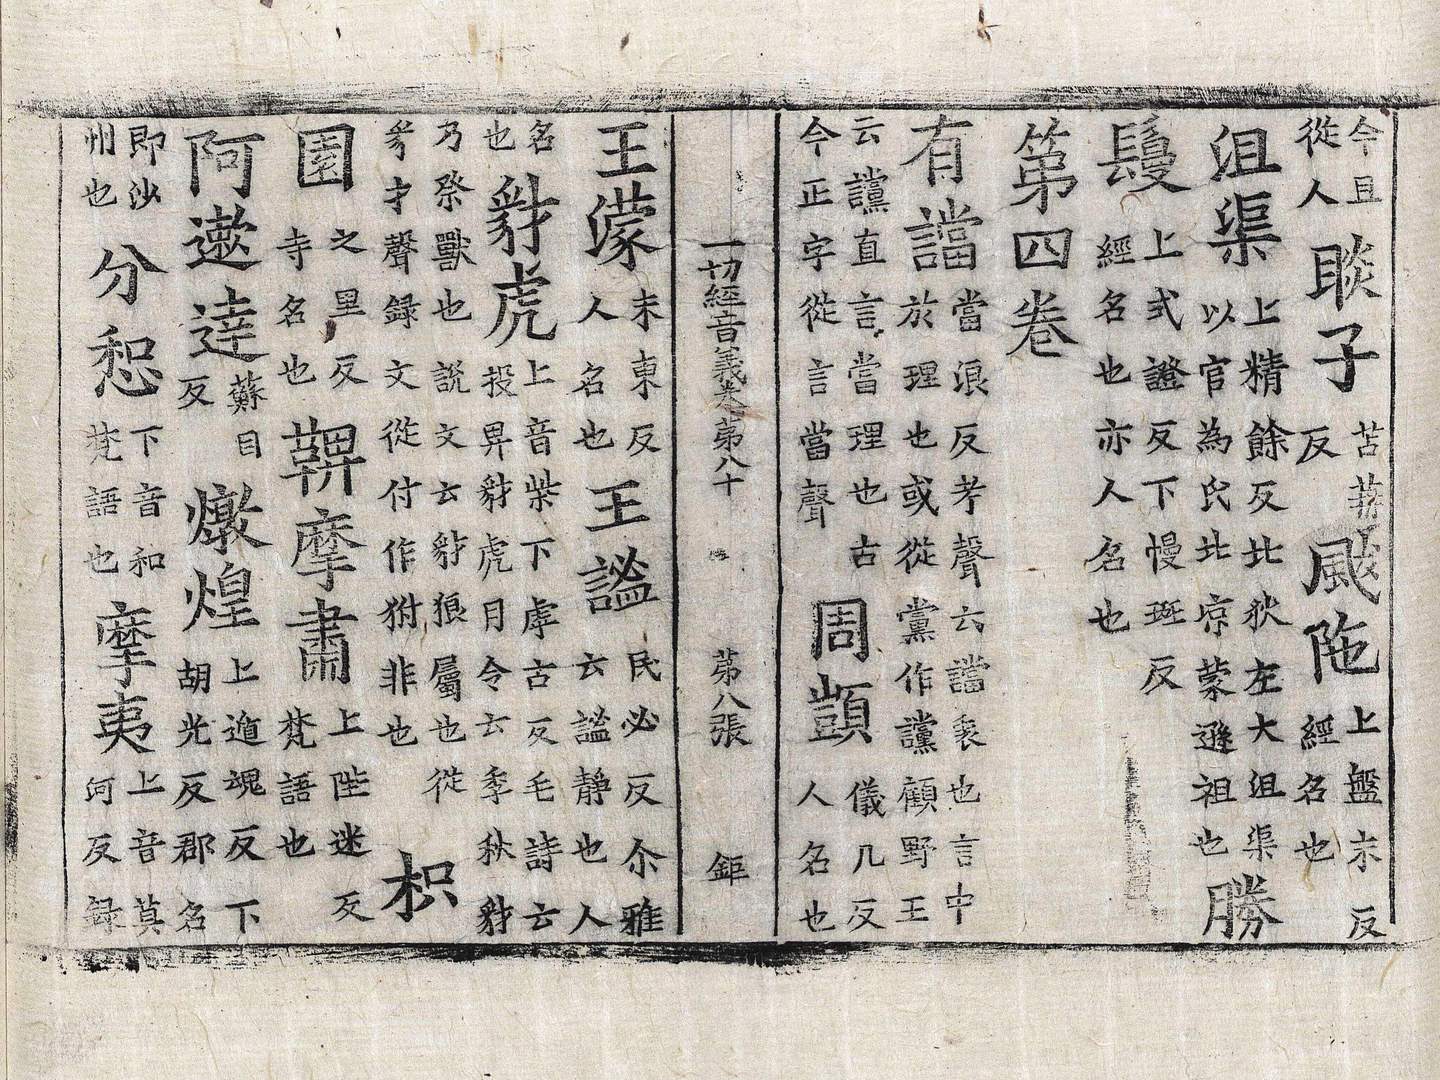 今且從人睒子苫反颰陁上盤末反經名也
沮渠上精餘反北狄左大沮渠以官為氏北凉蒙遜祖也勝
鬘上式證反下慢班反經名也亦人名也
第四卷
有譡當浪反考聲云譡衷也言中於理也或從黨作讜顧野王
云讜直言當理也古今正字從言當聲周顗儀几反人名也
一切經音義卷第八十 第八張 鉅
王濛未東反人名也王謐民必反尒雅云謐靜也人
名也豺虎上音柴下虖古反毛詩云投畀豺虎月令云季秋豺
乃祭獸也說文云豺狼屬也從豸才聲録文從付作㹨非也枳
園之里反寺名也鞞摩肅上陛迷反梵語也
阿遬達蘇目反燉煌上遁魂反下胡光反郡名
即沙州也分惒下音和梵語也摩夷上音莫河反録